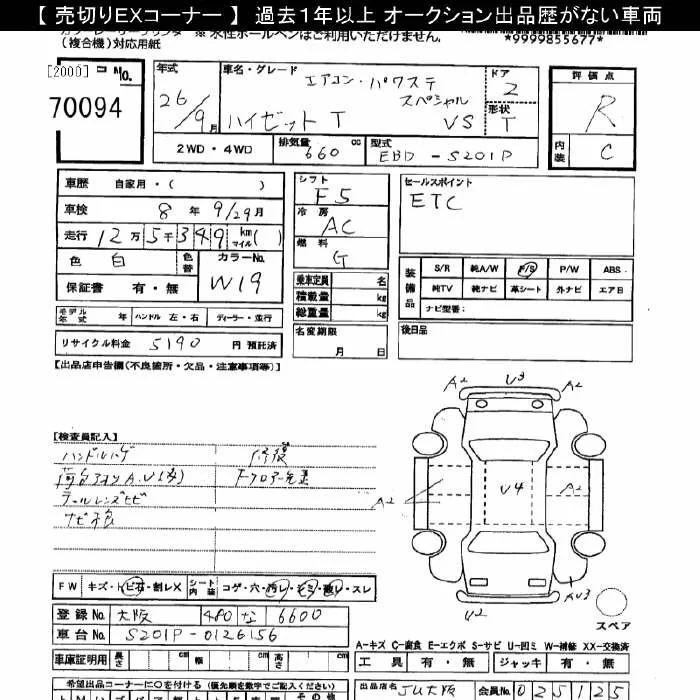 【 売切りEXコーナー 】 過去1年以上 オークション出品歴がない車両
(複合機)対応用紙
※水性ボールペンはご利用いただけません。
*9999855677*
[2000]
No.
70094
年式 26/9月
車名・グレード エアコン・パワステ スペシャル
ハイゼットT VS
ドア 2
形状 T
評価点 R
内装 C
2WD・4WD
排気量 660 cc
型式 EBD-S201P
車歴 自家用・( )
車検 8年 9/29月
走行 12万5千349 km マイル( )
色 白
色替
カラーNo. W19
保証書 有・無
モデル年式 年
ハンドル 左・右
ディーラー・並行
リサイクル料金 5190 円 預託済
シフト F5
冷房 AC
燃料 G
乗車定員 名
積載量 kg
総重量 kg
名変期限 月 日
セールスポイント
ETC
装備品
S/R 純A/W P/S P/W ABS
純TV 純ナビ 革シート 外ナビ エアB
ナビ型番:
後日品
【出品店申告欄(不良箇所・欠品・注意事項等)】
A2 V3 A2
【検査員記入】
修復
テールレンズヒビ
A2 V4 A2
V2
スペア
FW キズ・トビ石・割レX
シート内装 コゲ・穴・汚レ・スレ
登録No. 大阪 480 な 6600
車台No. S201P-0126156
車庫証明用 長さ 幅 高さ
A-キズ C-腐食 E-エクボ S-サビ U-凹ミ W-補修 XX-交換済
工具 有・無 ジャッキ 有・無
希望出品コーナーに○を付ける
出品店名 JU大阪
会員No. 025125